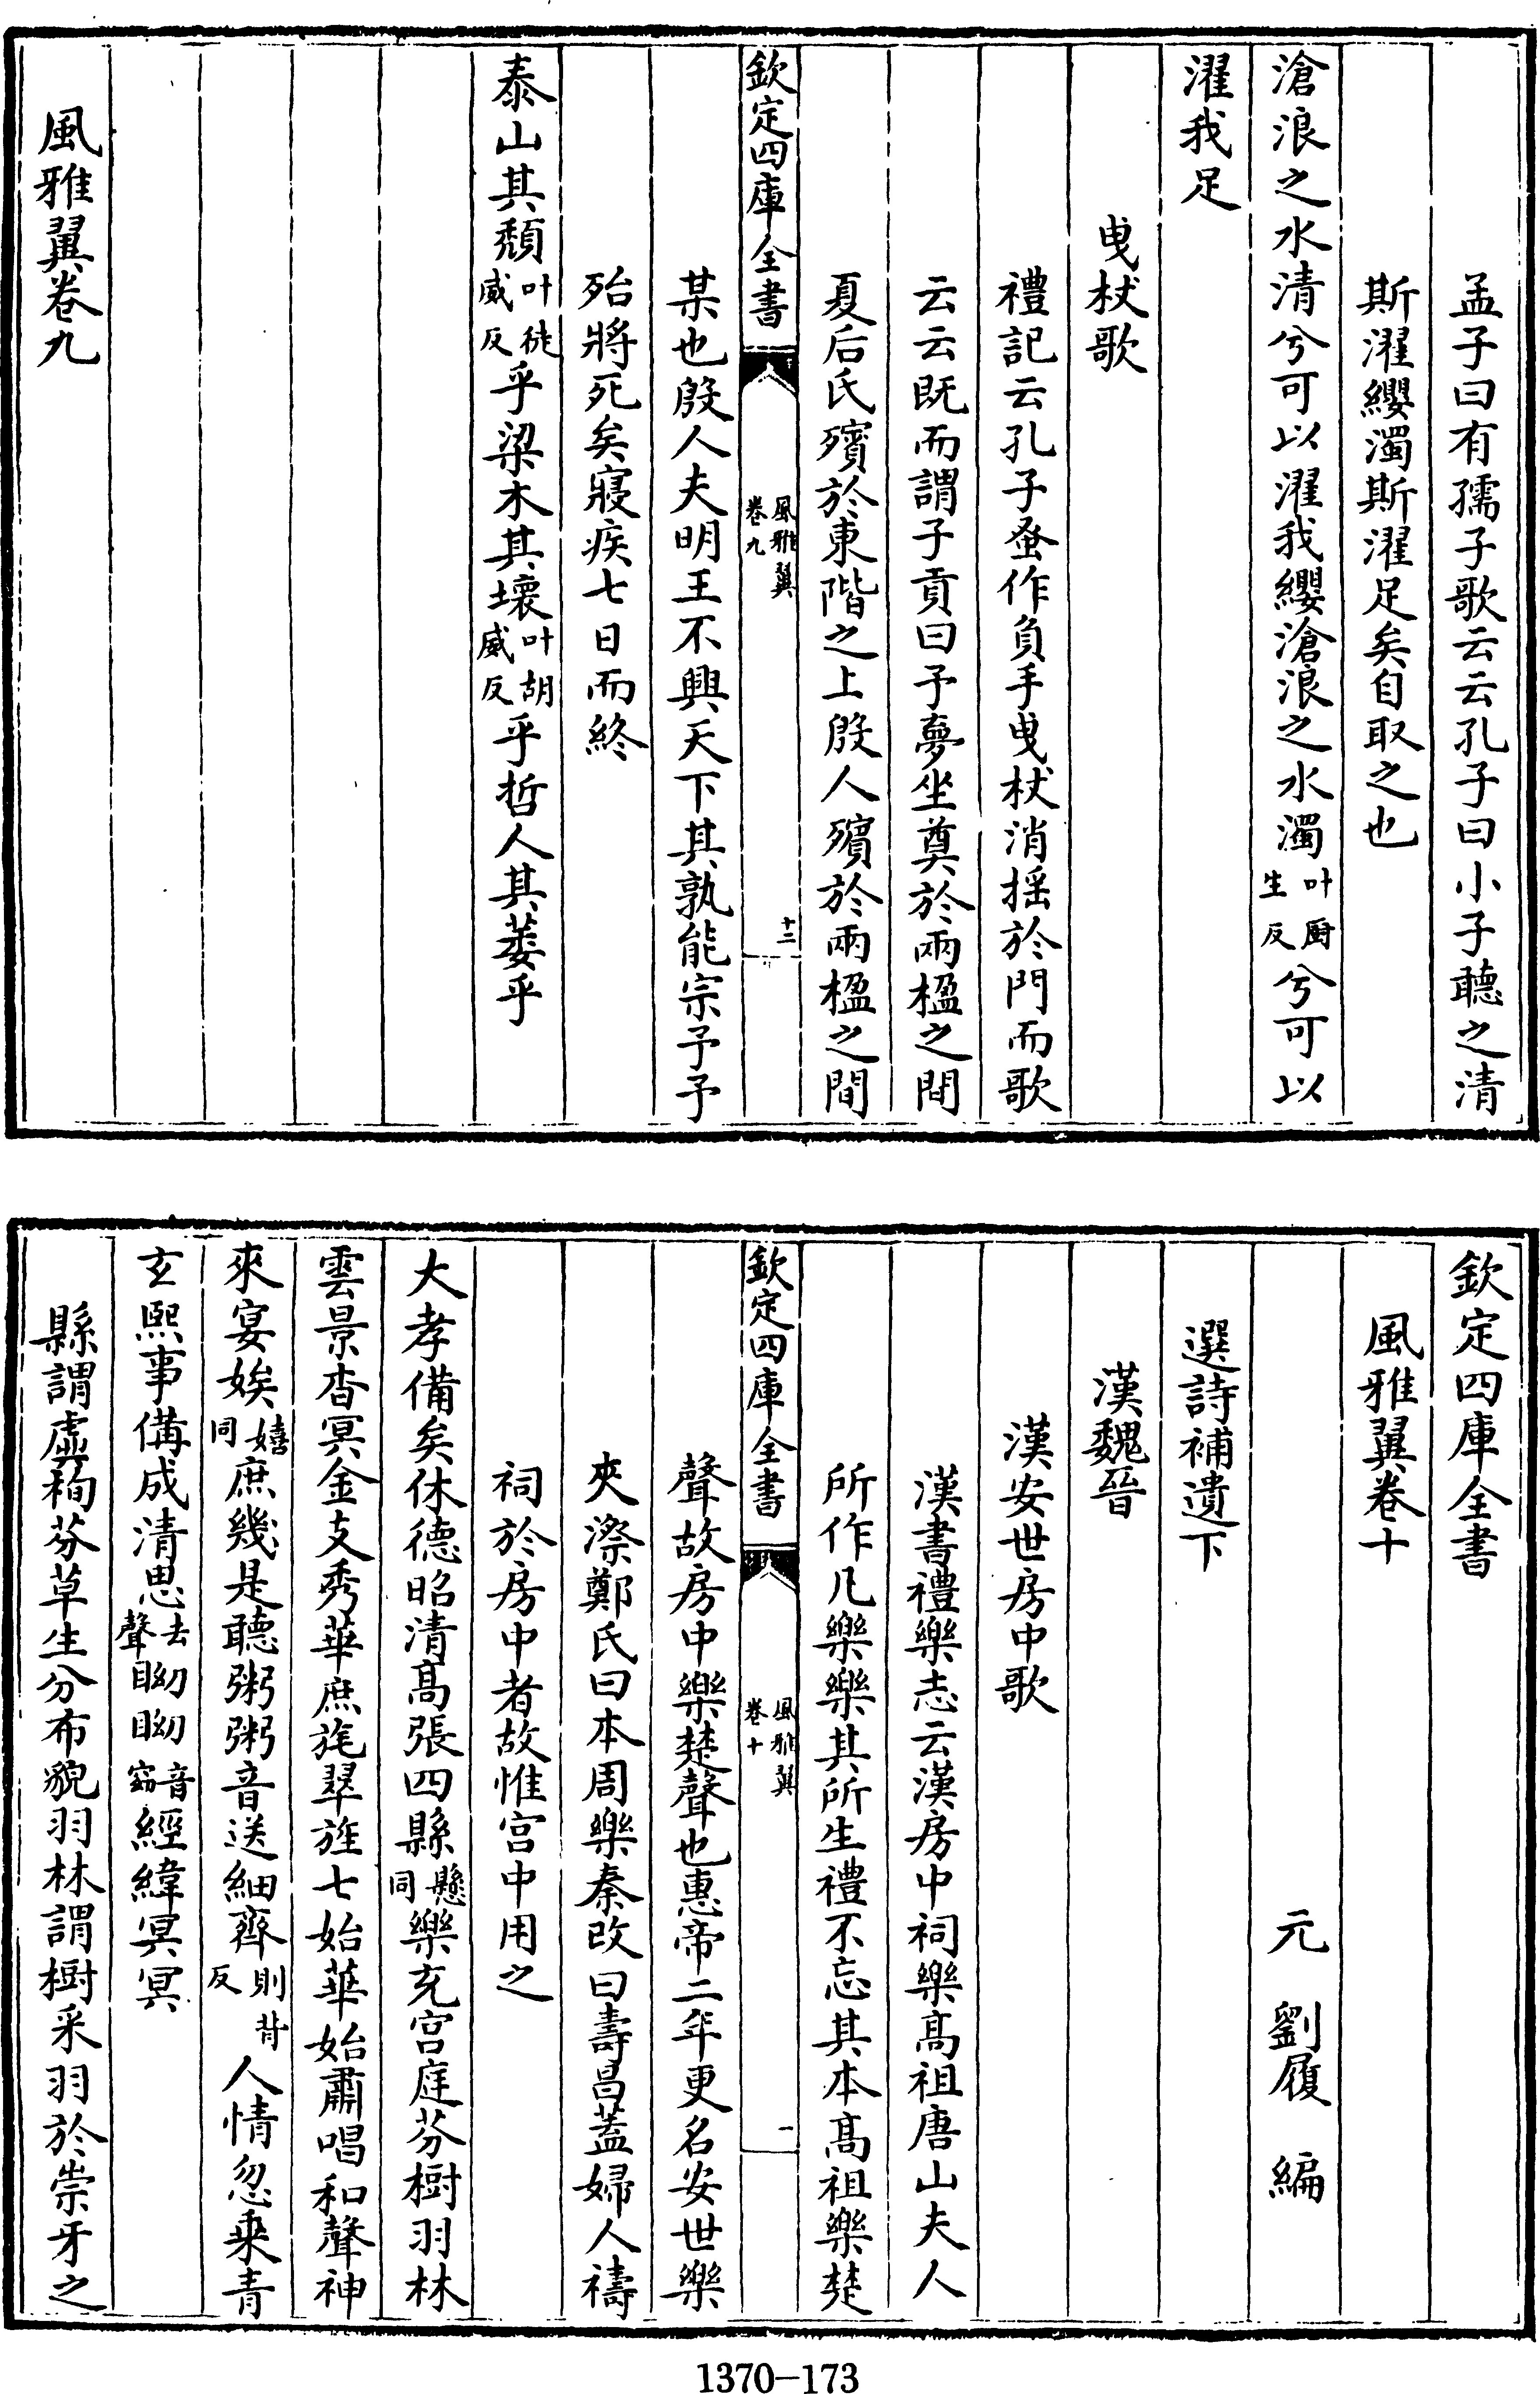 孟子曰有孺子歌云云孔子曰小子聽之清
斯濯纓濁斯濯足矣自取之也
滄浪之水清兮可以濯我纓滄浪之水濁叶厨生反兮可以
濯我足
曳杖歌
禮記云孔子蚤作負手曳杖消揺於門而歌
云云既而謂子貢曰予夢坐奠於兩楹之間
夏后氏殯於東階之上殷人殯於兩楹之間
欽定四庫全書 風雅翼卷九 十二
某也殷人夫明王不興天下其孰能宗予予
殆將死矣寢疾七日而終
泰山其頽叶徒威反乎梁木其壞叶胡威反乎哲人其萎乎
風雅翼卷九
欽定四庫全書
風雅翼卷十
元 劉履 編
選詩補遺下
漢魏晉
漢安世房中歌
漢書禮樂志云漢房中祠樂髙祖唐山夫人
所作凡樂樂其所生禮不忘其本髙祖樂楚
欽定四庫全書 風雅翼卷十 一
聲故房中樂楚聲也惠帝二年更名安世樂
夾漈鄭氏曰本周樂秦改曰壽昌蓋婦人禱
祠於房中者故惟宫中用之
大孝備矣休德昭清髙張四縣懸同樂充宫庭芬樹羽林
雲景杳冥金支秀華庶旄翠旌七始華始肅唱和聲神
來宴娭嬉同庶幾是聽粥粥音送細齊則背反人情忽乗青
玄熙事備成清思去聲眑眑音窈經緯冥冥
縣謂虡栒芬草生分布貌羽林謂樹采羽於崇牙之
1370-173